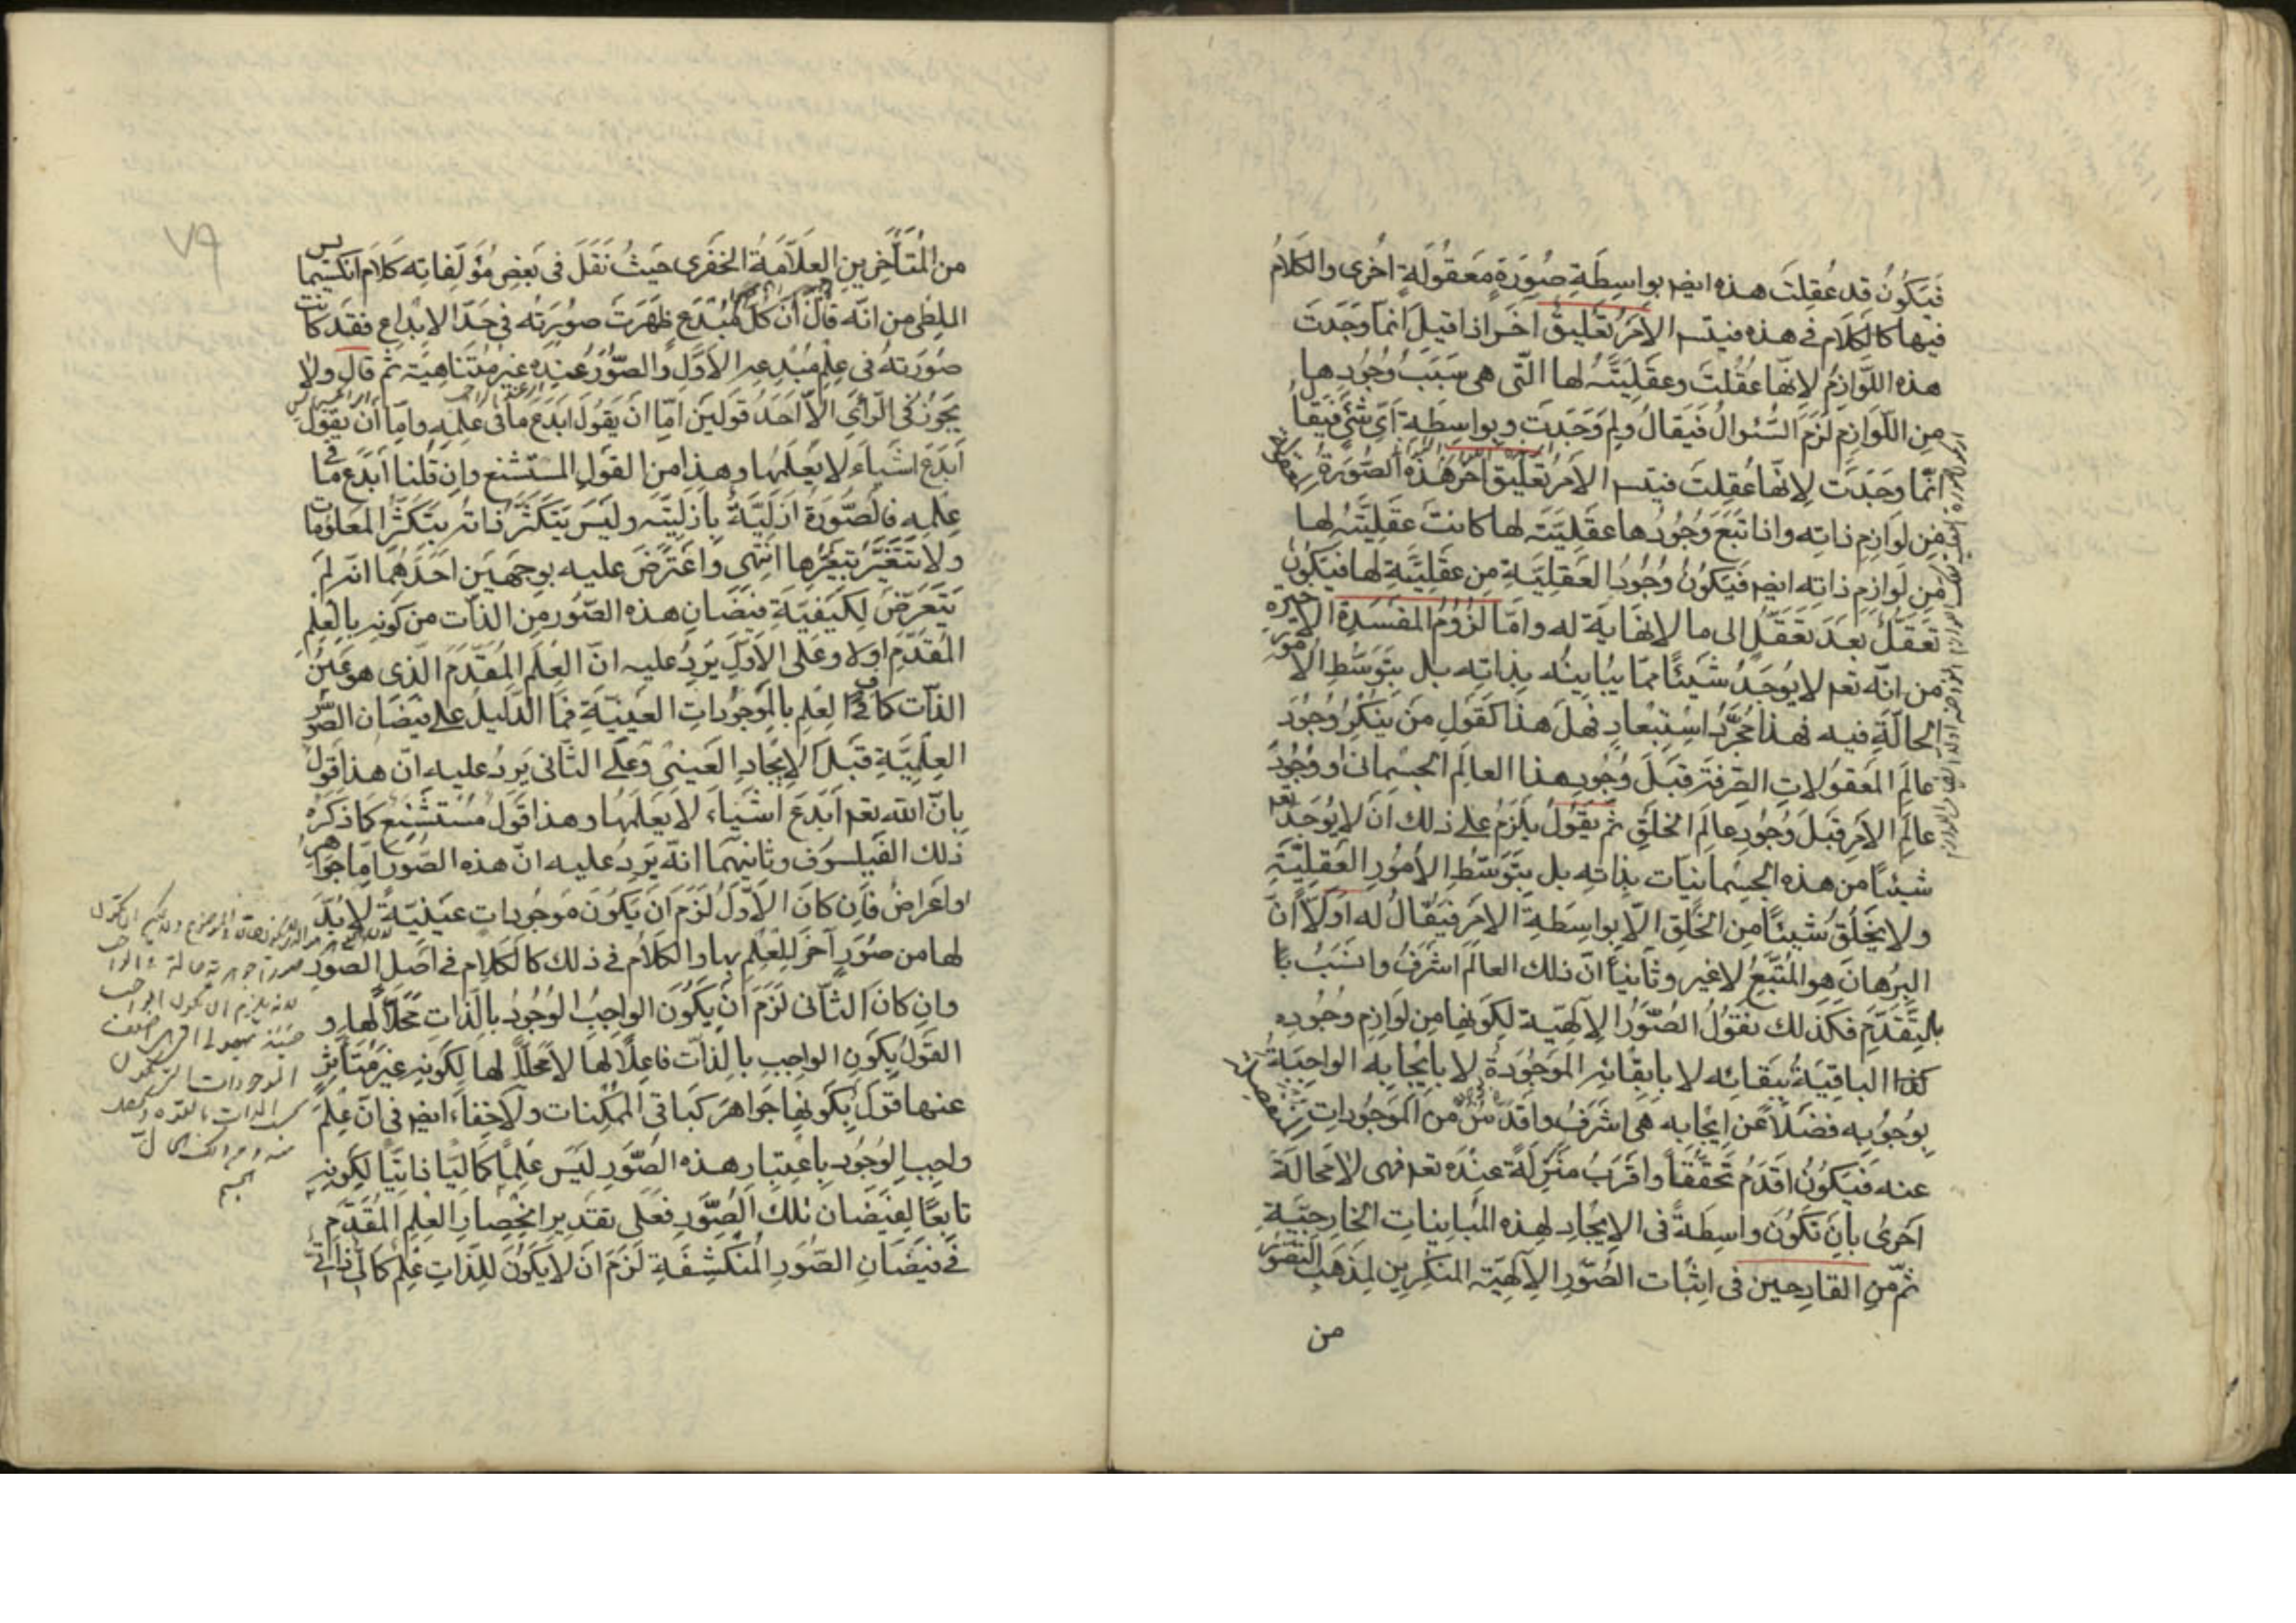 فَيَكُونُ قد عُقِلَت هذه ايضا بواسِطَةِ صُورَةٍ مَعقُولَةٍ اُخرى والكَلامُ
فيها كالكَلَام فى هذه فيتسـ الاَمرُ تَعليقٌ آخَر اذا قيلَ انّما وَجَدَت
هذه اللَّوازِمُ لِانّها عُقِلَت وعَقلِيَّتَهُ لها الّتى هى سَبَبُ وُجُودِها
مِن اللّوازِمِ لَزِمَ السُّئوالُ فَيَقالُ ولِمَ وَجَدَت وبواسِطَةِ اَىّ شَئٍ فَيَقالُ
انّما وجَدَت لِانّها عُقِلَت فيتسـ الاَمرُ تَعليق آخَر هذه الصُّورَةُ
مِن لَوازِمِ ذاتِه واذا تَبَعَ وُجُودُها عَقلِيَّتَه لها كانت عَقلِيَّتُه لها
مِن لَوازِمِ ذاتِه ايضا فَيَكُونُ وُجُودُ العَقلِيَّةِ مِن عَقلِيَّةٍ لها فَيَكُونُ
تَعَقُّلٌ بَعدَ تَعَقُّلٍ الى ما لا نهايَةَ له وامّا لُزُومُ المفسَدَةِ الاخيرة
من انّه تعه لا يُوجَدُ شَيئًا ممّا يُبايِنُه بِذاتِه بل بتَوَسُّطِ الاُمور
الحالَّةِ فيه فهذا مُجَرَّدُ اِستِبعادٍ فهَل هذا كَقَولِ مَن يُنكِرُ وُجُودَ
عالَمِ المَعقُولاتِ الصِّرفَةِ قَبلَ وُجُودِ هذا العالَمِ الجِسمانى او وُجُودَ
عالَمِ الاَمرِ قَبلَ وُجُودِ عالَمِ الخَلقِ ثمّ يَقُولُ يَلزَمُ على ذلك ان لا يُوجِدَ تعه
شيئًا من هذه الجِسمانيّات بذاتِه بل بتَوَسُّطِ الاُمُورِ العَقلِيَّةِ
ولا يَخلُقُ شَيئًا مِن الخَلقِ الّا بِواسِطَةِ الاَمرِ فَيُقالُ له اَوّلًا انَّ
البُرهانَ هو المُتَّبَعُ لا غير وثانيًا انّ ذلك العالَمَ اشرَفُ وانسَبُ با
بالتَّقَدُّمِ فكَذلك نَقُولُ الصُّوَرُ الاِلهيّة لِكَونِها مِن لَوازِمِ وجُودِه
كذا الباقيَةُ ببَقائِه لا بابقائِه المَوجُودَةُ لا بايجابِه الواجِبَةُ
بِوُجُوبِه فضلًا عن ايجابِه هى اشرَفُ واقدَسُ من المَوجُوداتِ
عنه فَيَكُونُ اقدَمُ تَحَقُّقًا واقرَبُ مَنزِلَةً عِندَه تعه فهى لا مَحالَةَ
اَحرى بان تَكُونَ واسِطَةً فى الايجادِ لهذه المُبايناتِ الخارجيّةِ
ثمّ من القادِحين فى اِثبات الصُّوَرِ الاِلهيّة المنكِرِين لمذهب
من
٧٩
من المُتَأخِّرين العَلّامَةُ الخَفرى حيثُ نَقَلَ فى بَعضِ مُؤَلَّفاتِه كَلامَ انكسيمايس
المَلِطى من انّه قالَ انّ كلّ مُبدَعٍ ظَهَرَت صُورَتُه فى حَدّ الابداعِ فقَد كانت
صُورَتُه فى عِلمِ مُبدِعِه الاَوَّلِ والصُّوَرُ عِندَه غيرُ مُتَناهيَةٍ ثمّ قال ولا
يجُوزُ فى الرّأىِ الّا اَحَدُ قَولَين امّا ان يَقُولَ اَبدَعَ ما فى عِلمِه وامّا اَن يقولَ
اَبدَعَ اشياءَ لا يَعلَمُها وهذا من القَولِ المستشنع وان قُلنا اَبدَعَ ما فى
عِلمِه فالصُّورَةُ ازَلِيَّةٌ بازليّتِه وليسَ يتَكَثَّرُ ذاتُه بتَكَثُّر المَعلُومات
ولا تَتَغَيَّر بتَغَيُّرِها انتهى واعتَرَضَ عليه بوجهَين احَدُهُما انّه لم
يَتَعَرَّض لِكَيفِيّةِ فيَضانِ هذه الصُّوَر مِن الذّات من كَونِه بالعِلمِ
المُقَدَّمِ او لا وعَلى الاوّلِ يَرِدُ عليه انّ العِلمَ المُقَدَّمَ الّذى هو عَينُ
الذّات كافٍ فى العِلمِ بالمَوجُوداتِ العَينيّةِ فما الدَّليلُ على فيَضان الصُّوَر
العِلمِيَّةِ قَبلَ الايجادِ العَينىِ وعلى الثّانى يَرِدُ عليه انّ هذا قولٌ
بانّ الله تعه اَبدَعَ اشياءَ لا يَعلَمُها وهذا قَولٌ مُستَشنَعٌ كما ذَكَرَه
ذلك الفَيلسُوف وثانيهما انّهُ يَرِدُ عليه انّ هذه الصُّوَر امّا جواهر
او اعراضٌ فاِن كانَ الاَوّلُ لَزِمَ اَن يَكُونَ مَوجُوداتٍ عَينيّةً لا بُدَّ
لها من صُوَرٍ آخَر لِلعِلمِ بها والكَلامُ فى ذلك كالكَلامِ فى اصلِ الصُّورِ
وان كانَ الثّانى لَزِمَ اَن يَكُونَ الواجِبُ الوُجُودُ بالذّاتِ مَحَلًّا لها و
القَولُ بِكَونِ الواجِبِ بالذّات فاعِلًا لها لا مَحَلًّا لها لِكَونِه غيرَ مُتأثِّرٍ
عنها قَولٌ بكَونِها جَواهرَ كباقى المُمكِنات ولا خِفاءَ ايضا فى انّ عِلمَ
واجِبِ الوُجُودِ باعتِبارِ هذه الصُّوَرِ لَيسَ عِلمًا كماليًّا ذاتيًّا لِكَونِه
تابِعًا لِفَيَضانِ تلكَ الصُّوَرِ فعَلى تقديرِ انحِصارِ العِلمِ المُقَدَّمِ
فى فيَضانِ الصُّوَرِ المُنكَشِفَةِ لَزِمَ ان لا يَكُونَ لِلذّاتِ عِلمٌ كمالىٌّ ذاتىٌّ